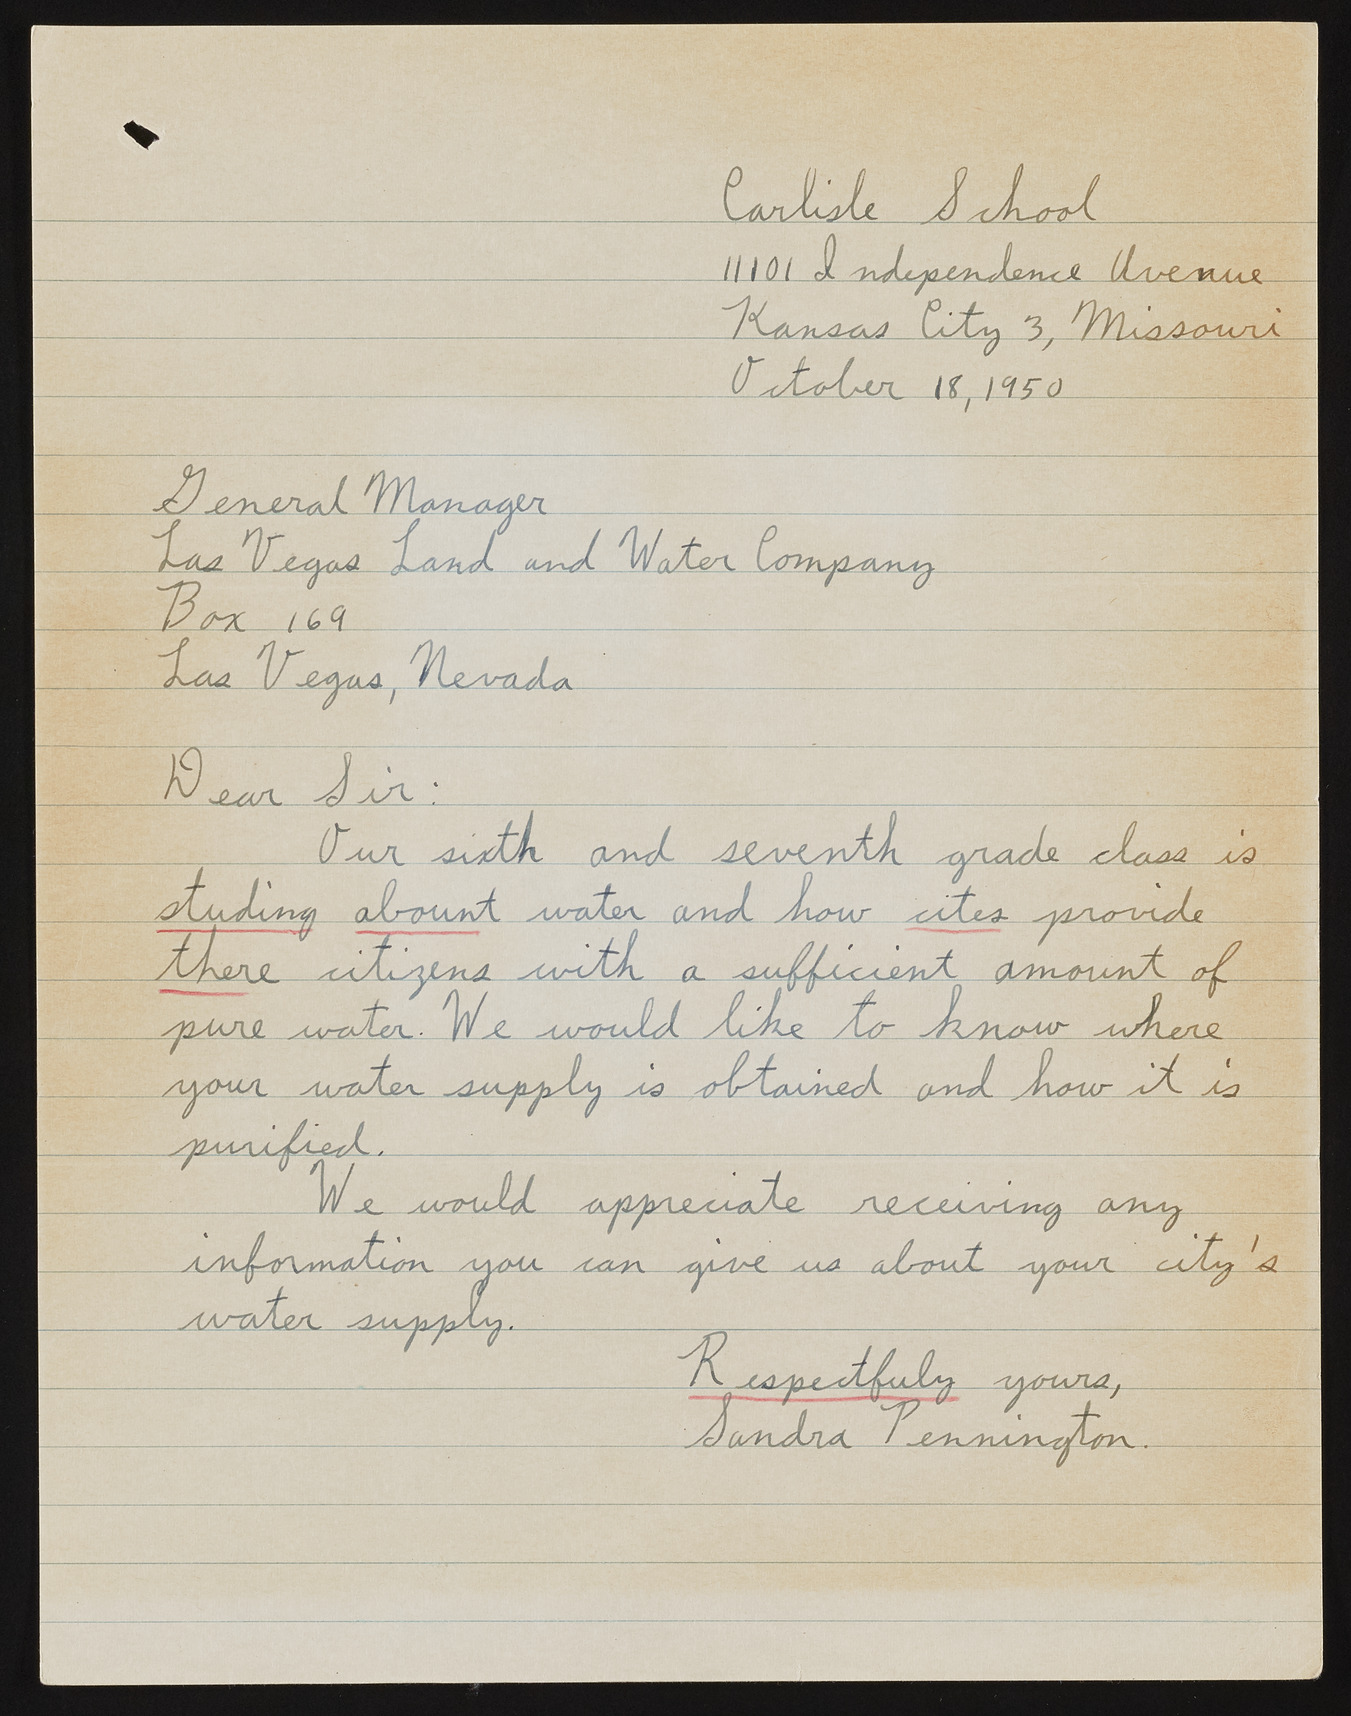 Carlisle School
11101 Independence Avenue
Kansas City 3, Missouri
October 18, 1950
General Manager
Las Vegas Land and Water Company
Box 169
Las Vegas, Nevada
Dear Sir:
Our sixth and seventh grade class is
studing abount water and how cites provide
there citizens with a sufficient amount of
pure water. We would like to know where
your water supply is obtained and how it is
purified.
We would appreciate receiving any
information you can give us about your city's
water supply.
Respectfuly yours,
Sandra Pennington.